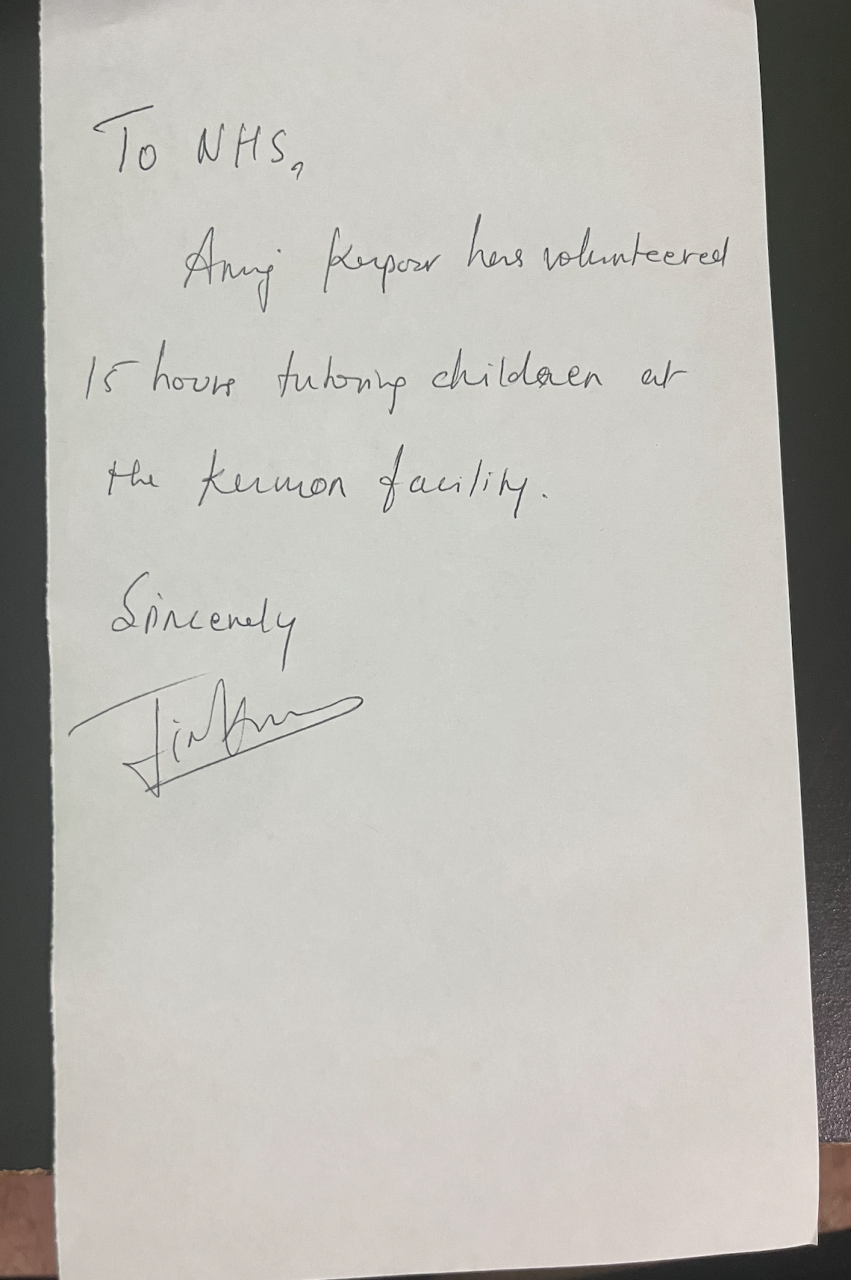 To NHS,
Anuj Kapoor has volunteered
15 hours tutoring children at
the Kumon facility.
Sincerely